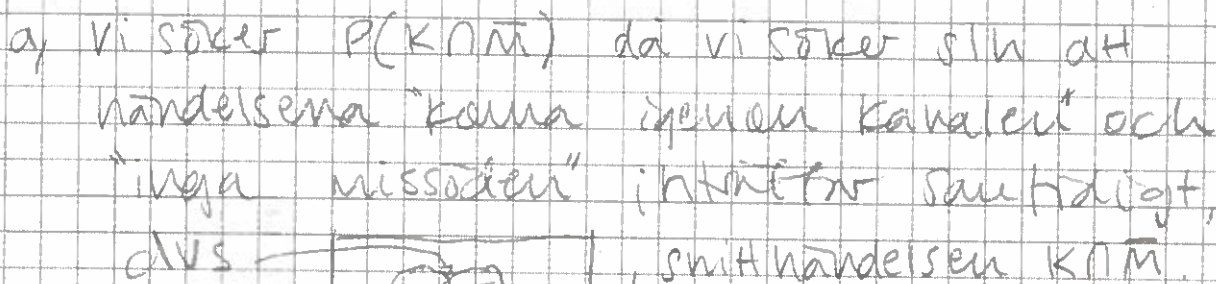 a) Vi söker P(K∩M̅) då vi söker slh att
händelserna "komma igenom kanalen" och
"inga missöden" inträffar samtidigt,
dvs , snitthändelsen K∩M̅.